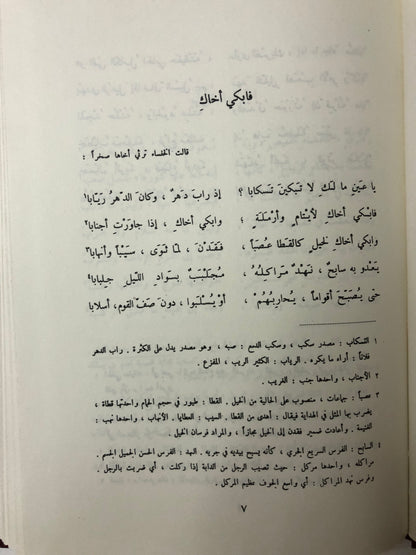 فابكي أخاكِ
قالت الخنساء ترثي أخاها صخراً :
يا عَينِ ما لَكِ لا تَبكينَ تَسكابا ؟ إذ رابَ دَهرٌ ، وكانَ الدّهرُ رَيّابا١
فابْكي أخاكِ لأيْتامٍ وأرْمَلَةٍ ، وابكي أخاكِ ، إذا جاوَرْتِ أجنابا٢
وابكي أخاكِ لخيلٍ كالقَطا عُصَباً ، فَقَدْنَ ، لمّا ثَوَى ، سَيْباً وأنهابا٣
يَعْدُو بهِ سابحٌ ، نَهْدٌ مَراكِلُهُ ، مُجَلْبَبٌ بسَوادِ اللّيلِ جِلبابا٤
حتى يُصَبّحَ أقواماً ، يُحارِبُهُمْ ، أوْ يُسْلَبُوا ، دونَ صَفّ القومِ ، أسلابا
١ التسكاب : مصدر سكب ، وسكب الدمع : صبه ، وهو مصدر يدل على الكثرة . راب الدهر
فلاناً : أراه ما يكره . الرياب : الكثير الريب ، المفزع .
٢ الأجناب ، واحدها جنب : الغريب .
٣ عصباً : جماعات ، منصوب على الحالية من الخيل . القطا : طيور في حجم الحمام واحدتها قطاة ،
يضرب بها المثل في الهداية فيقال : أهدى من القطا . السيب : العطايا . الأنهاب ، واحدها نهب :
الغنيمة . وأعادت ضمير فقدن إلى الخيل مجازاً ، والمراد فرسان الخيل .
٤ السابح : الفرس السريع الجري ، كأنه يسبح بيديه في جريه . النهد : الفرس الحسن الجميل الجسم .
مراكله ، واحدها مركل : حيث تصيب الرجل من الدابة إذا ركلت ، أي ضربت بالرجل .
وفرس نهد المراكل : أي واسع الجوف عظيم المركل .
٧